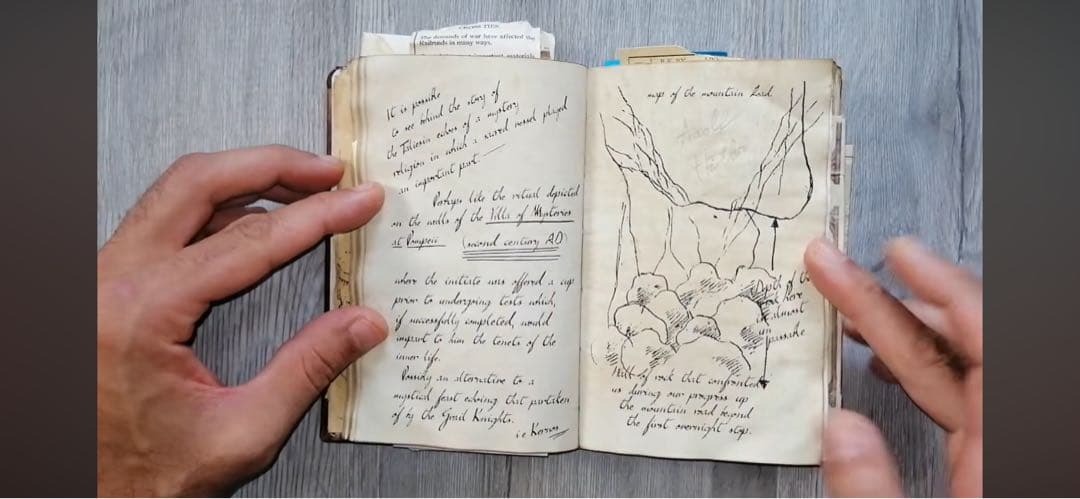 CROSS TIES
The demands of war have affected the
Railroads in many ways.
important materials
It is possible
to see behind the story of
the Taliesin echoes of a mystery
religion in which a sacred vessel played
an important part.—
Perhaps like the ritual depicted
on the walls of the Villa of Mysteries
at Pompeii (second century AD)
where the initiate was offered a cup
prior to undergoing tests which,
if successfully completed, would
impart to him the tenets of the
inner life.
Possibly an alternative to a
mystical feast echoing that partaken
of by the Grail Knights.
i.e Kernos
map of the mountain Road
Depth of the
rock here
is almost
im
passable
Wall of rock that confronted
us during our progress up
the mountain road beyond
the first overnight stop.